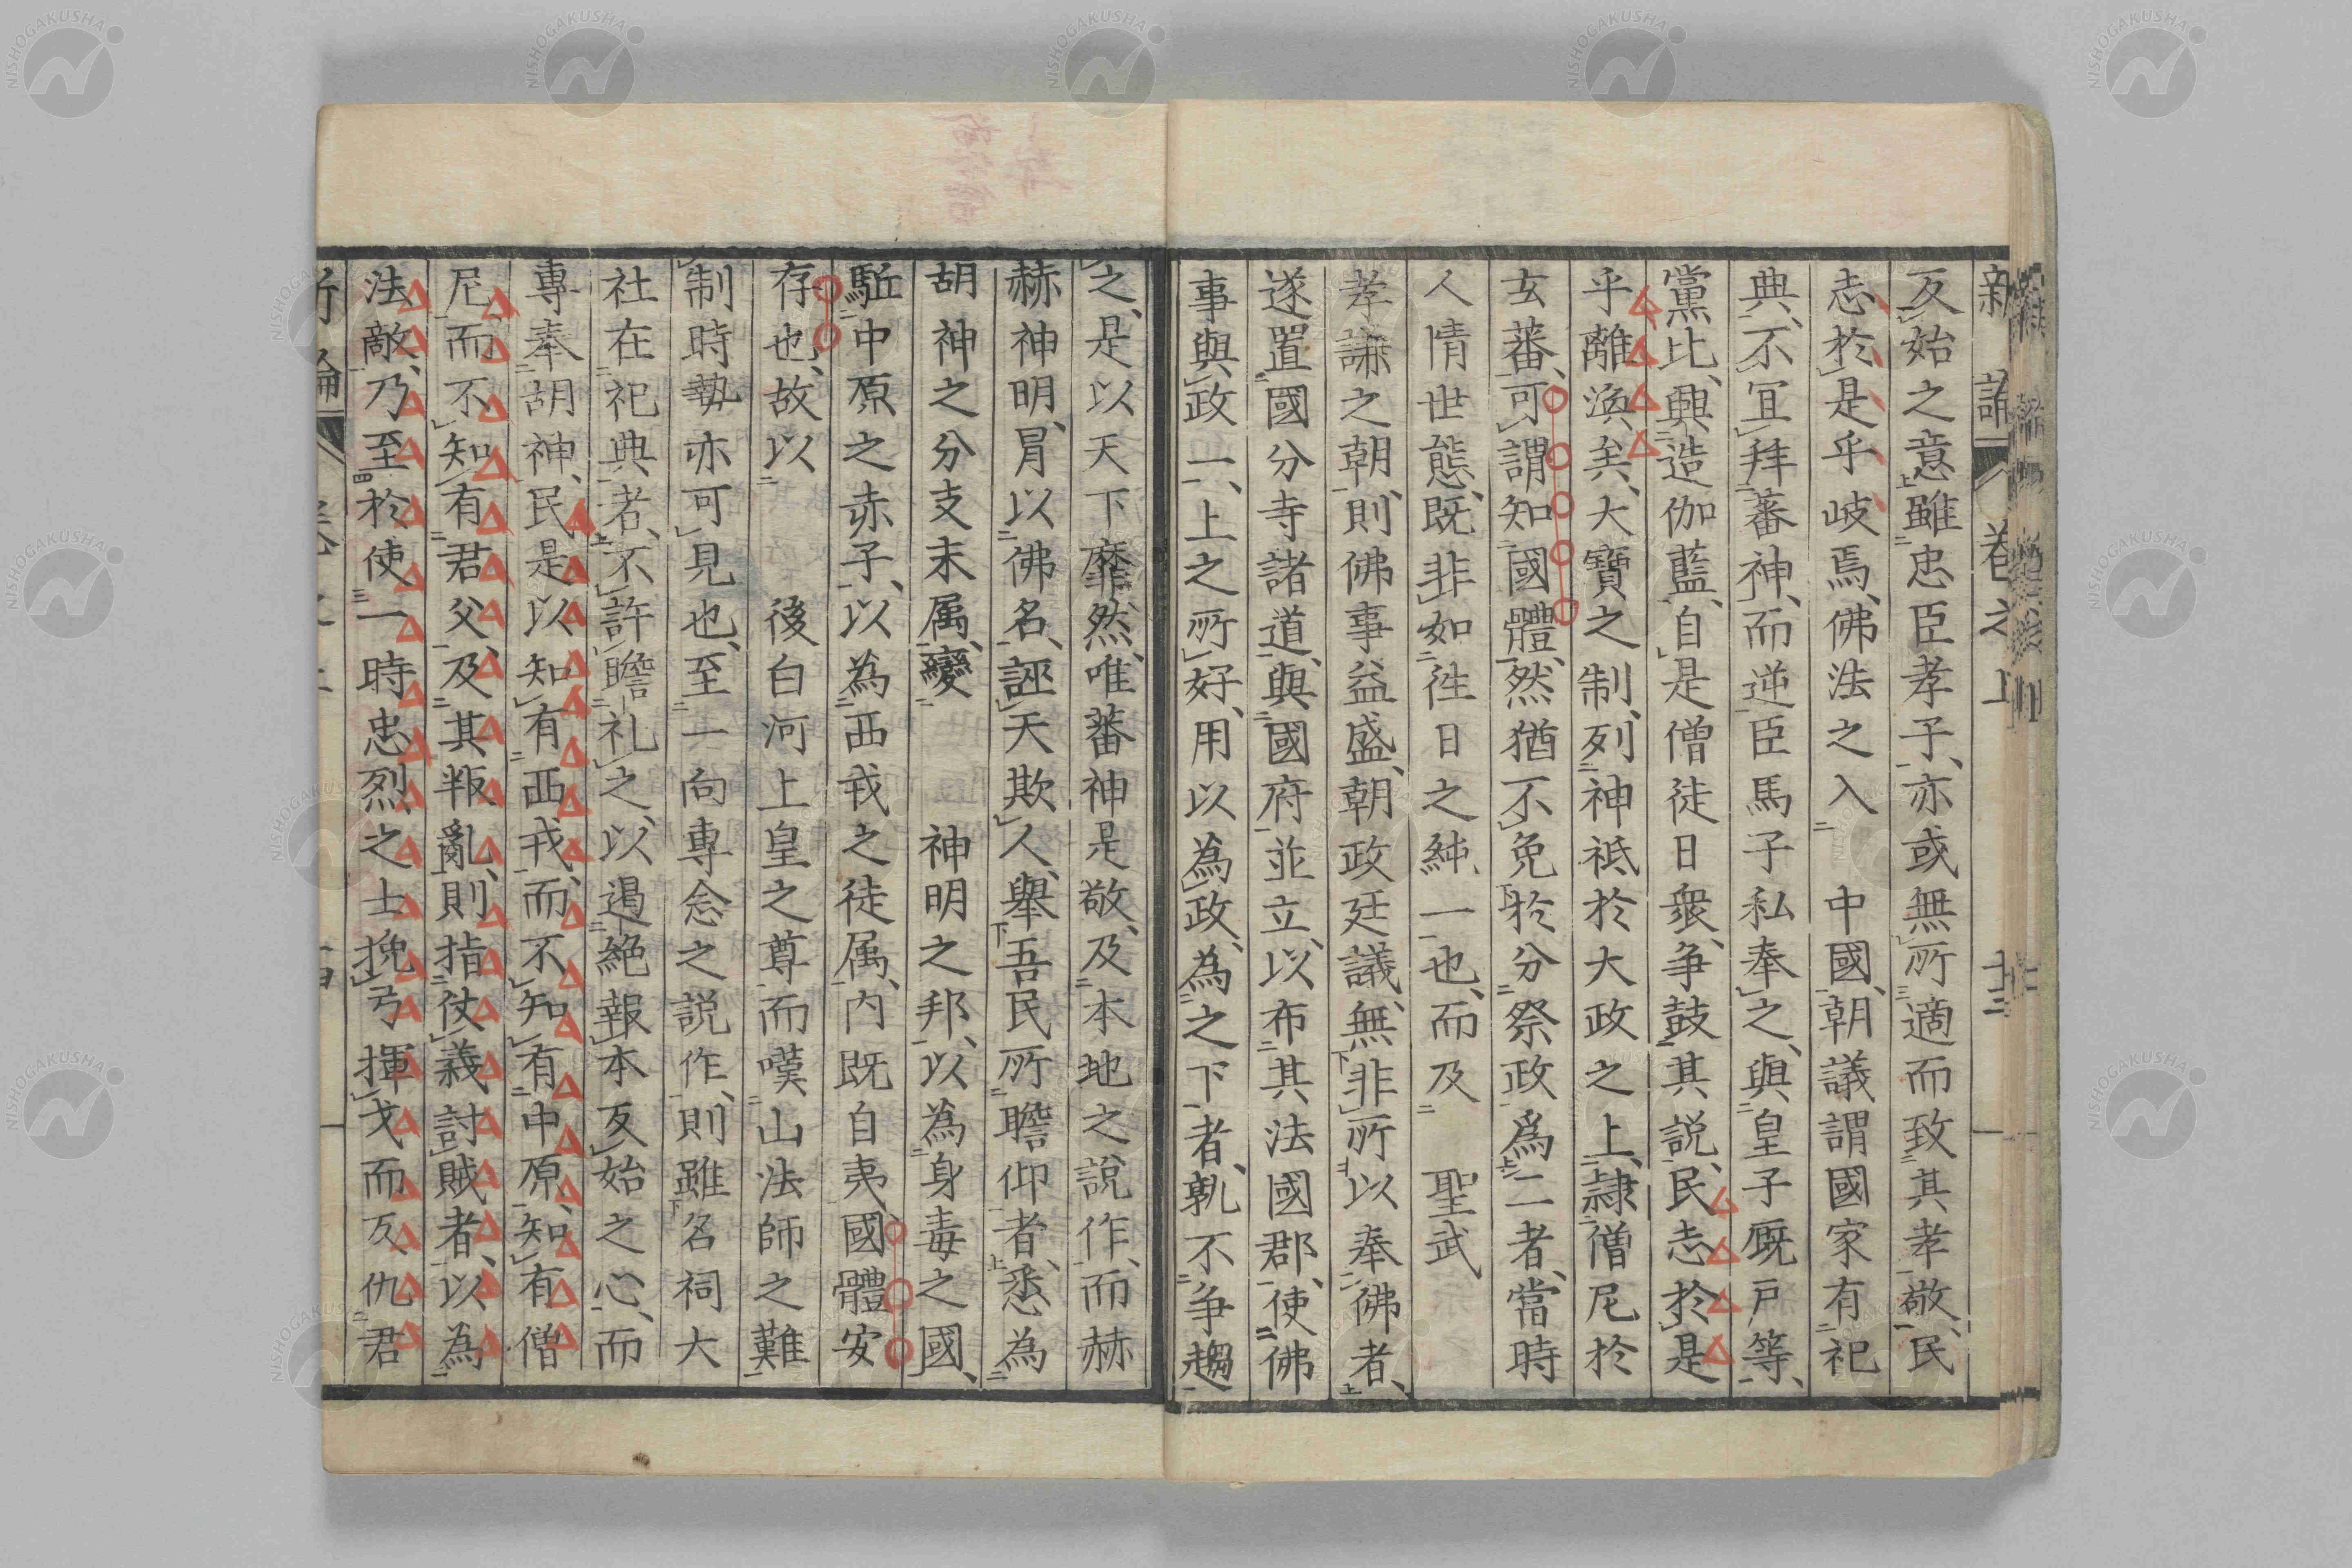 新論 卷之上 十三
反始之意、雖忠臣孝子、亦或無所適而致其孝敬、民
志於是乎岐焉、佛法之入 中國、朝議謂國家有祀
典、不宜拜蕃神、而逆臣馬子私奉之、與皇子厩戸等、
黨比、興造伽藍、自是僧徒日衆、爭鼓其説、民志於是
乎離渙矣、大寶之制、列神祇於大政之上、隷僧尼於
玄蕃、可謂知國體、然猶不免於分祭政爲二者、當時
人情世態、既非如往日之純一也、而及 聖武
孝謙之朝、則佛事益盛、朝政廷議、無非所以奉佛者、
遂置國分寺諸道、與國府並立、以布其法國郡、使佛
事與政一、上之所好、用以為政、為之下者、孰不爭趨
之、是以天下靡然、唯蕃神是敬、及本地之說作、而赫
赫神明、冒以佛名、誣天欺人、擧吾民所瞻仰者、悉為
胡神之分支末属、變 神明之邦、以為身毒之國、
駈中原之赤子、以為西戎之徒属、内既自夷、國體安
存也、故以 後白河上皇之尊而嘆山法師之難
制時勢亦可見也、至一向專念之説作、則雖名祠大
社在祀典者、不許瞻礼之、以遏絶報本反始之心、而
專奉胡神、民是以知有西戎、而不知有中原、知有僧
尼而不知有君父、及其叛亂、則指仗義討賊者、以為
法敵、乃至於使一時忠烈之士挽弓揮戈而反仇君